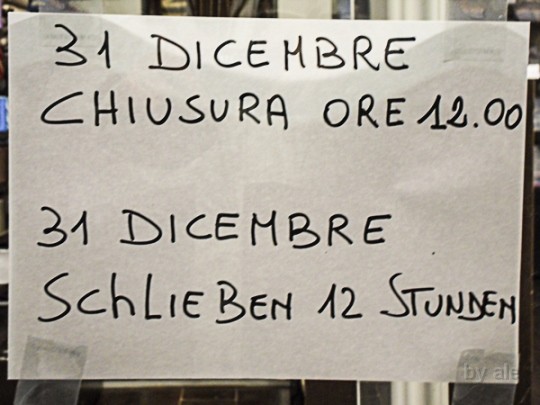 31 DICEMBRE
CHIUSURA ORE 12.00
31 DICEMBRE
SCHLIEBEN 12 STUNDEN
by ale